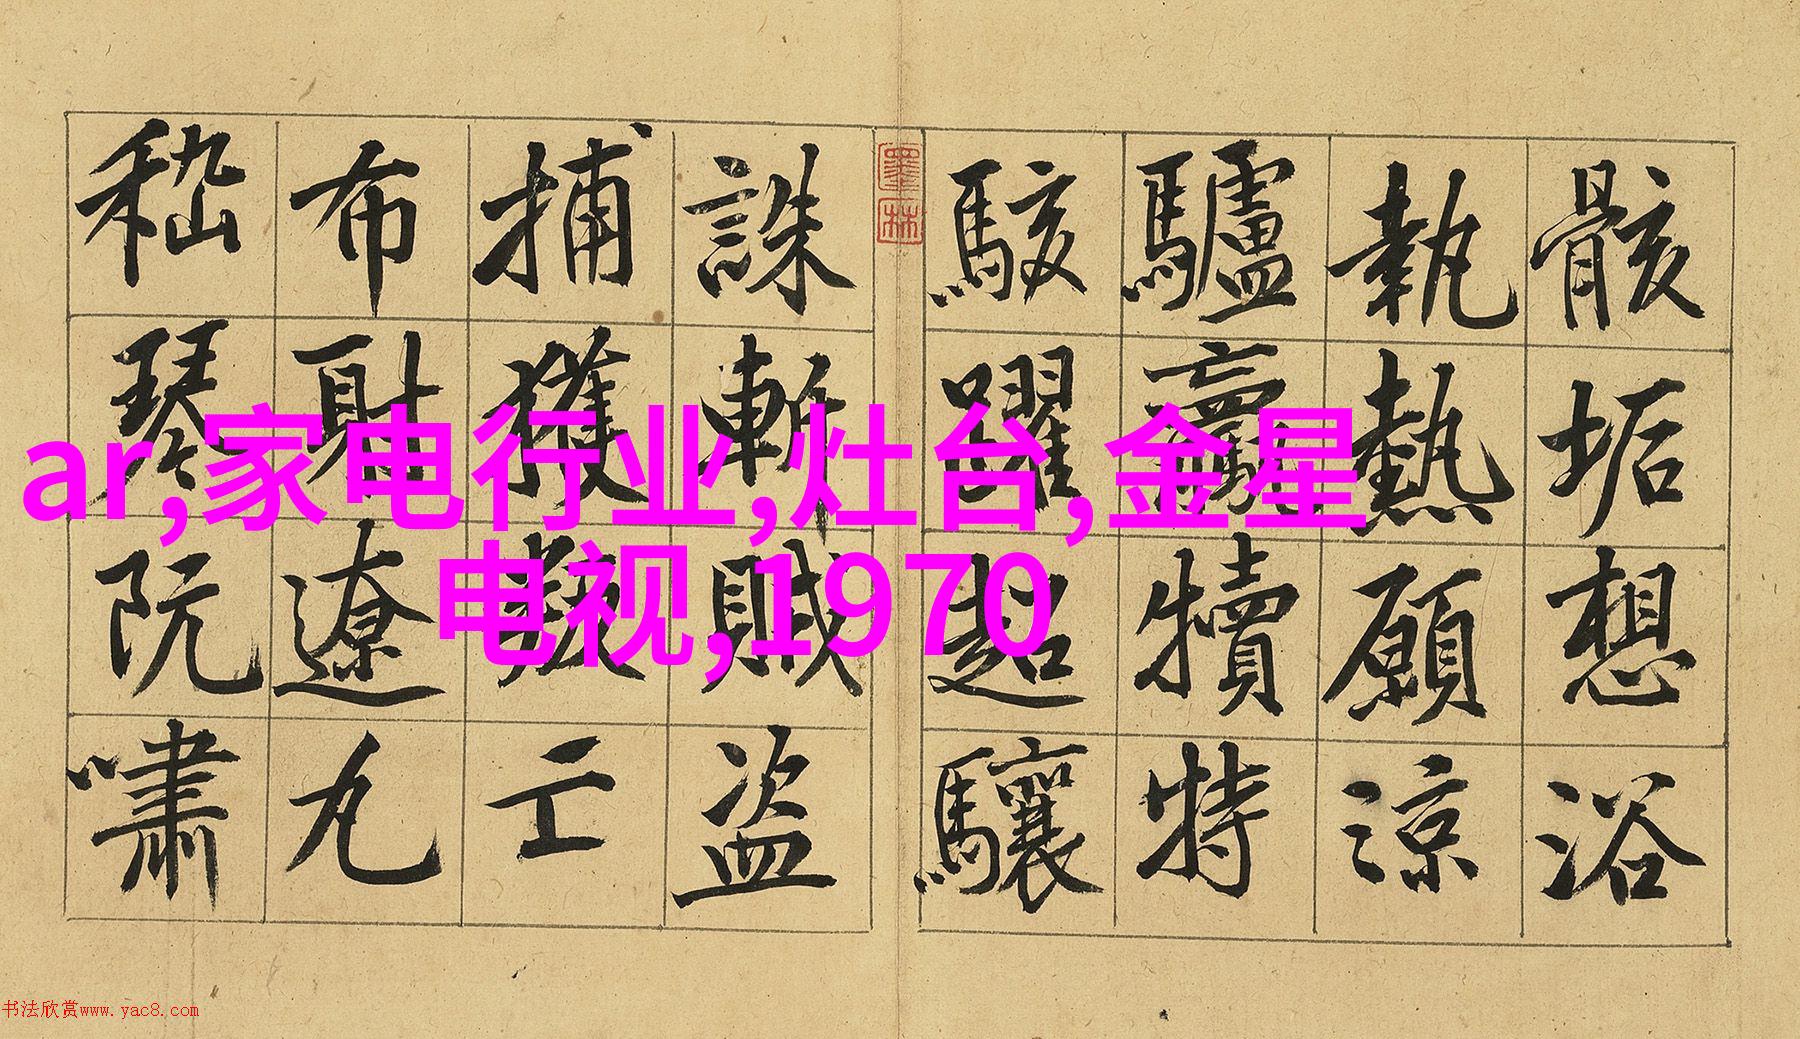 骸垢想浴
執熱願涼
驢驘犢特
駭躍超驤
墨林
誅斬賊盜
捕獲叛亡
布射遼丸
嵇琴阮嘯
ar,家电行业,灶台,金星
电视,1970
书法欣赏www.yac8.com